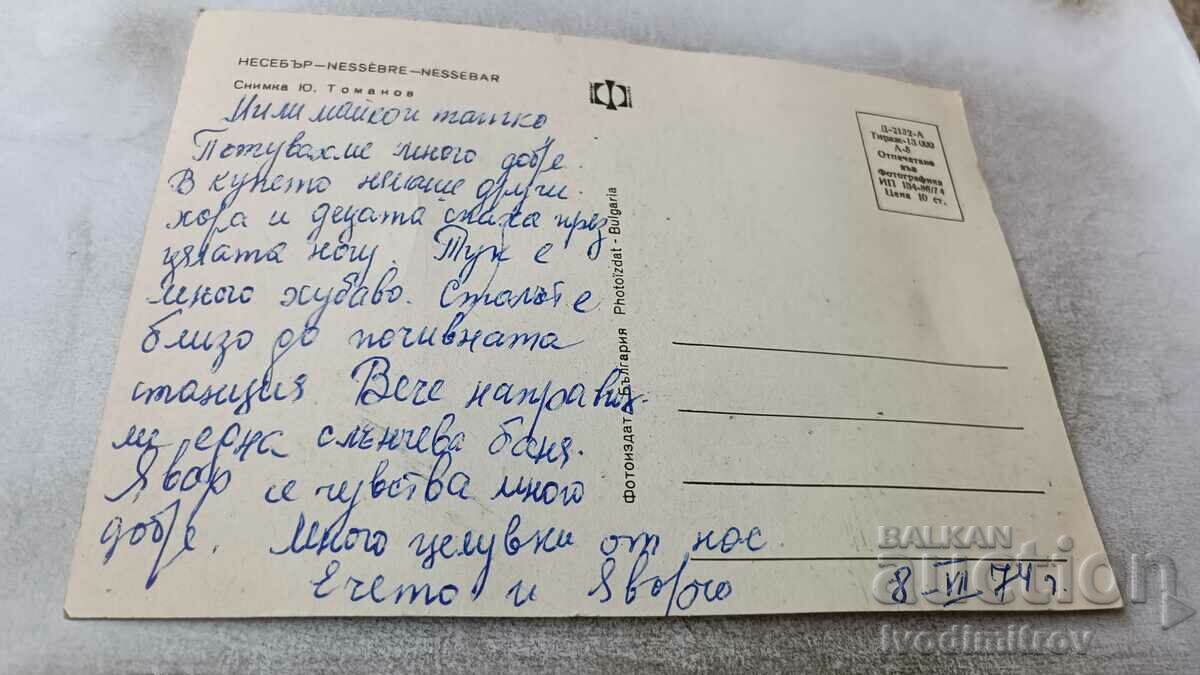 НЕСЕБЪР—NESSÈBRE—NESSEBAR
Снимка Ю. Томанов
Мили майко и татко
Пътувахме много добре.
В купето нямаше други
хора и децата спаха през
цялата нощ. Тук е
много хубаво. Столът е
близо до почивната
станция. Вече направих-
ме една слънчева баня.
Явор се чувства много
добре. Много целувки от нас.
Ечето и Яворчо
8 VI 74 г.
Фотоиздат - България Photoizdat - Bulgaria
Д-2132-А
Тираж-13 000
А-8
Отпечатано
във
Фотографика
ИП 134-86/74
Цена 10 ст.
BALKAN
auction
ivodimitrov